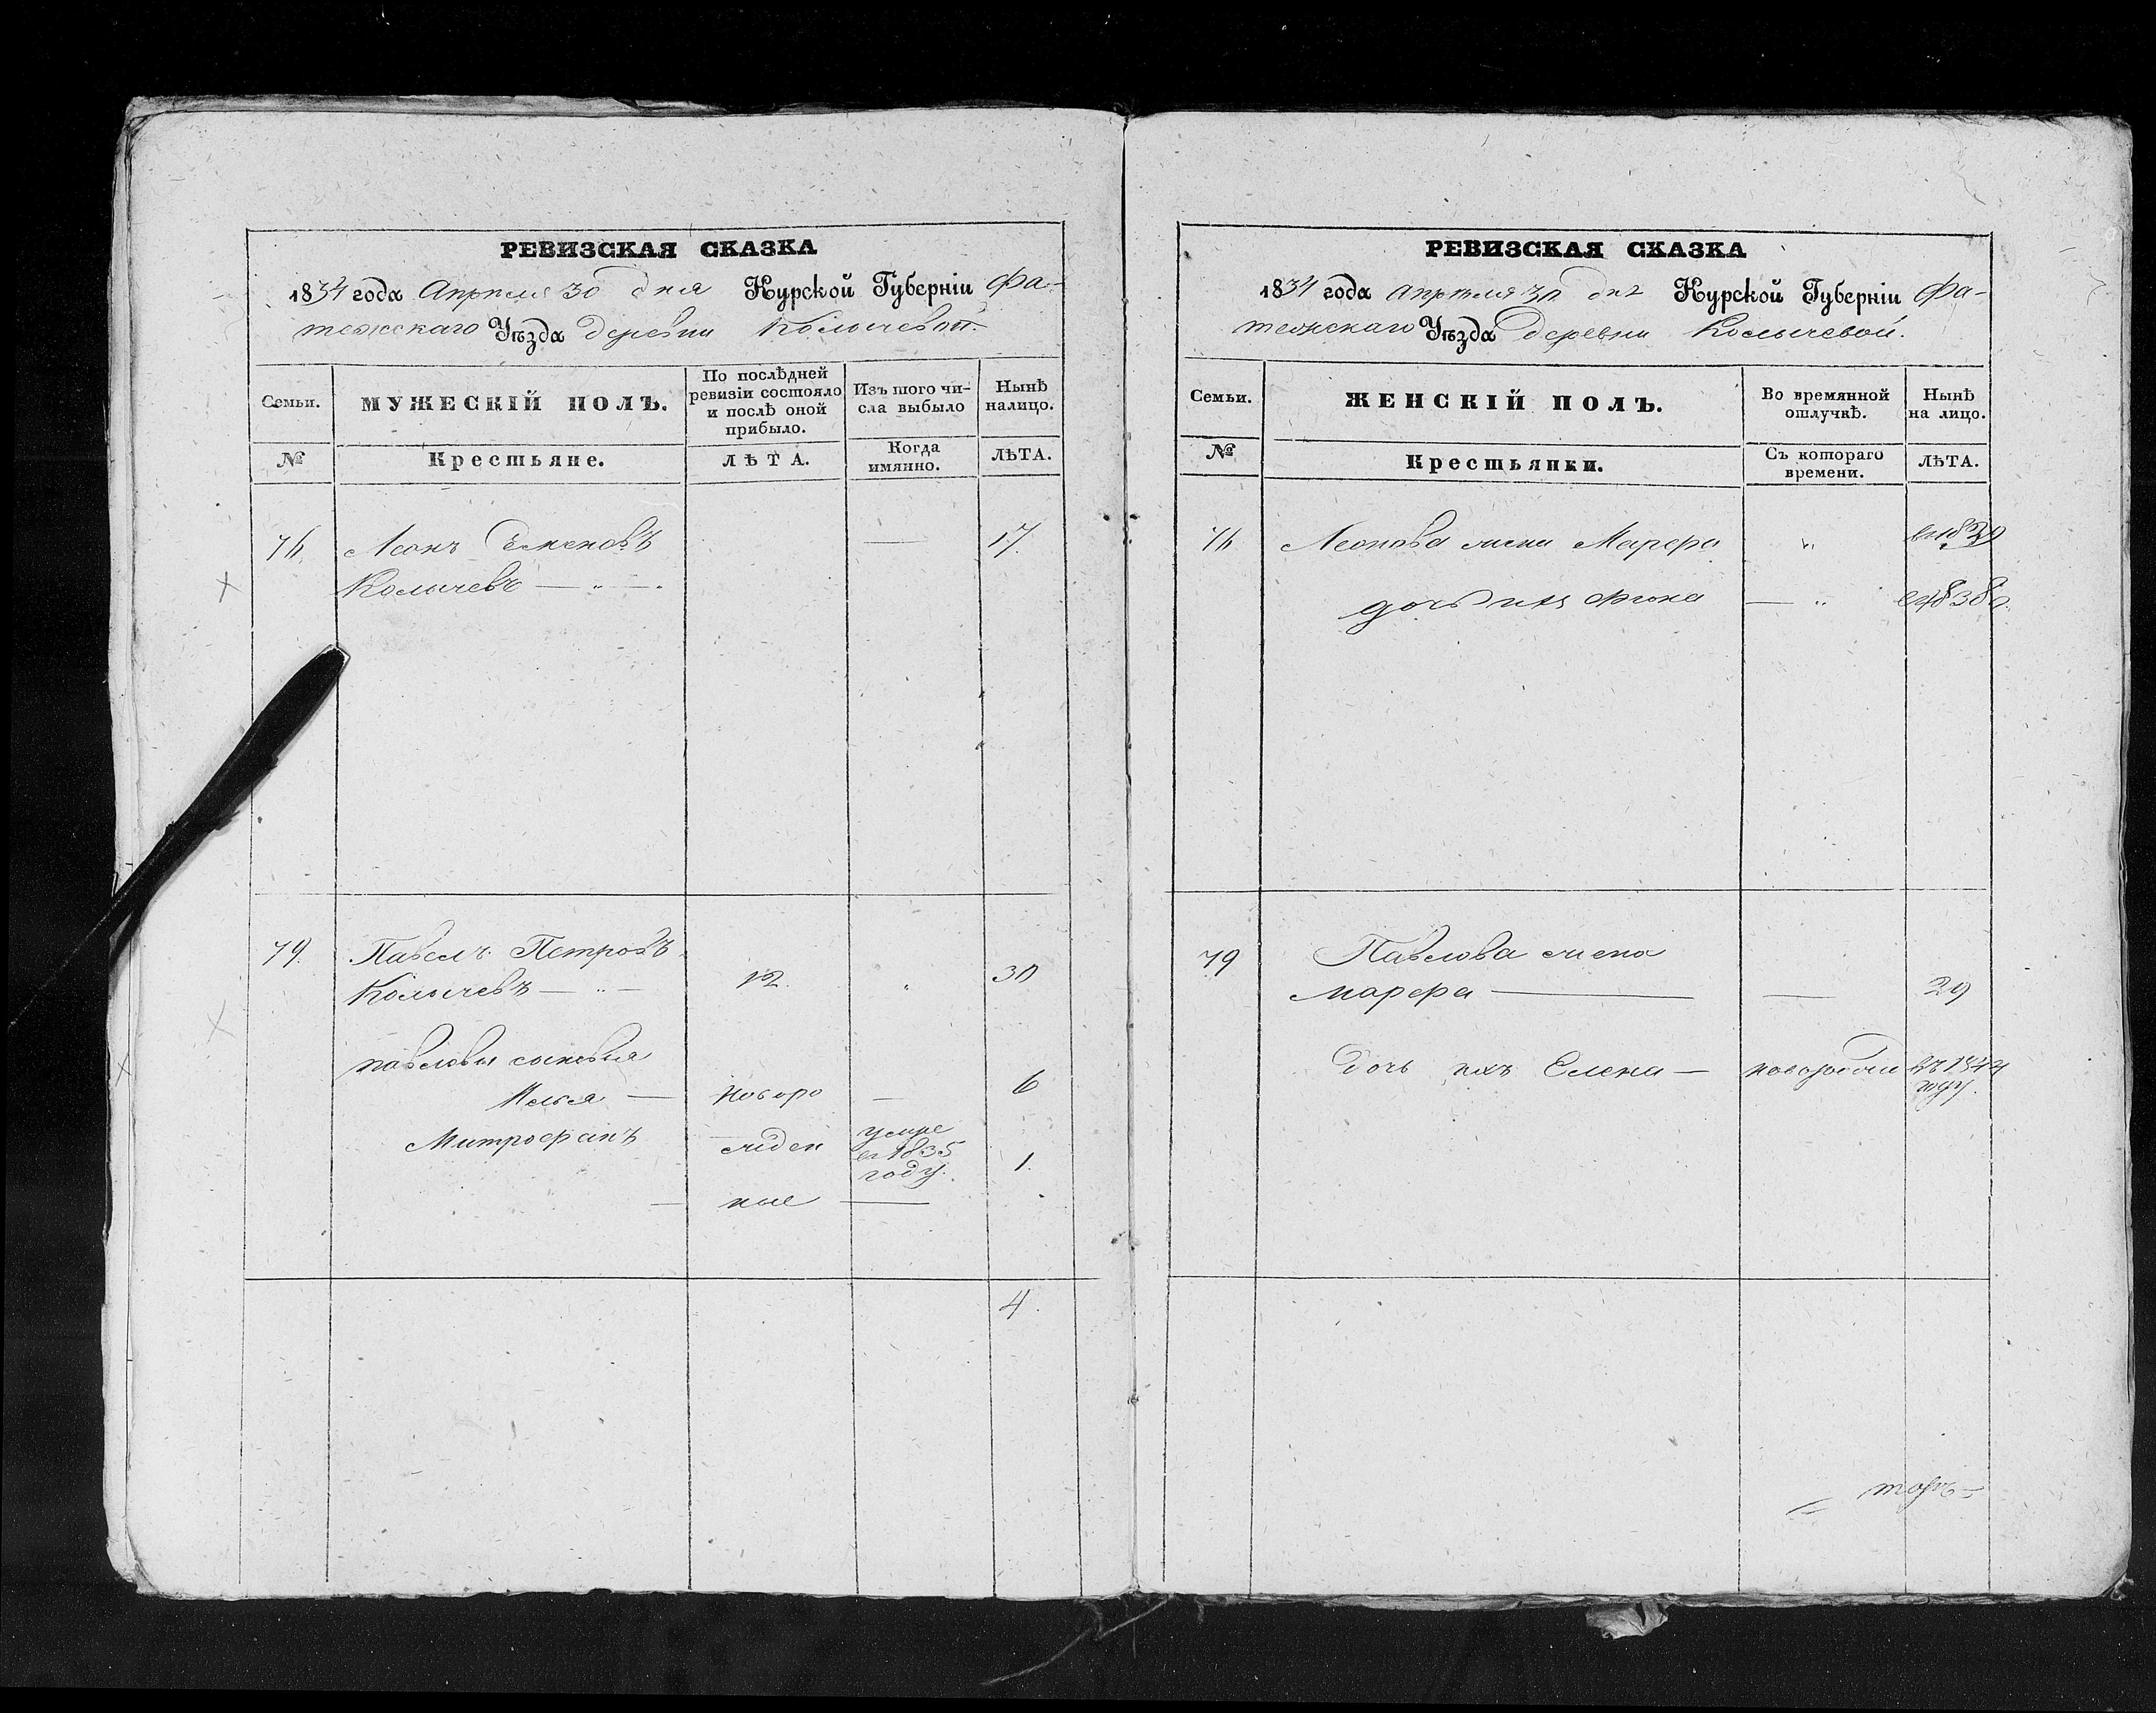 РЕВИЗСКАЯ СКАЗКА
1834 года Апреля 30 дня Курской Губерніи Фа-
тежскаго Уѣзда деревни Колычевой.
Семьи.
МУЖЕСКІЙ ПОЛЪ.
По послѣдней
ревизіи состояло
и послѣ оной
прибыло.
Изъ того чи-
сла выбыло
Нынѣ
налицо.
№
Крестьяне.
ЛѢТА.
Когда
имянно.
ЛѢТА.
Леонъ Семеновъ
17.
Колычевъ — „ —
79.
Павелъ Петровъ
Колычевъ — „ —
12.
30
павловы сыновья
Илья —
новоро
—
6
Митрофанъ
жден
умре
въ 1835
году.
1.
ные
4.
РЕВИЗСКАЯ СКАЗКА
1834 года апреля 30 дня Курской Губерніи Фа-
тежскаго Уѣзда деревни Колычевой.
Семьи.
ЖЕНСКІЙ ПОЛЪ.
Во времянной
отлучкѣ.
Нынѣ
на лицо.
№
Крестьянки.
Съ котораго
времени.
ЛѢТА.
Леонова жена Марфа
дочь ихъ
79
Павлова жена
марфа —
—
29
Дочь ихъ Елена —
году.